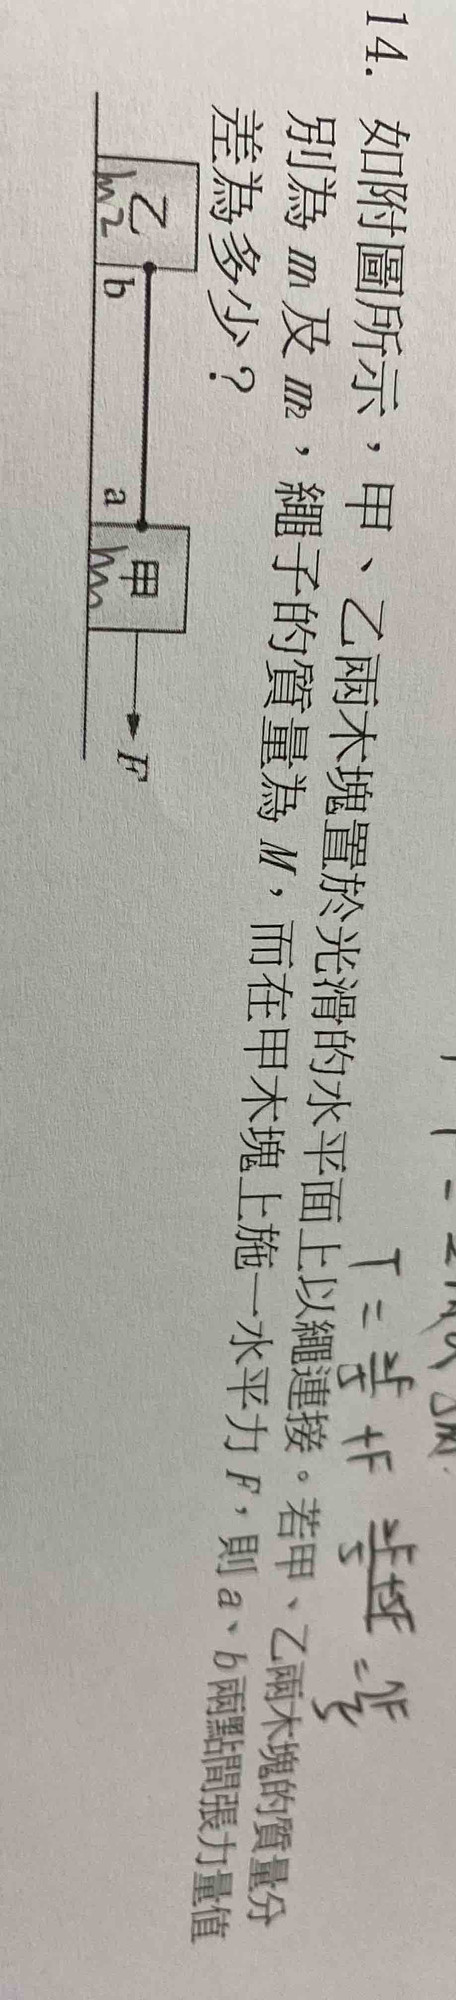 14. 如附圖所示，甲、乙兩木塊置於光滑的水平面上以繩連接。若甲、乙兩木塊的質量分
別為 m 及 m₂，繩子的質量為 M，而在甲木塊上施一水平力 F，則 a、b 兩點間張力量值
差為多少？
乙 b a 甲 F
m₂ m